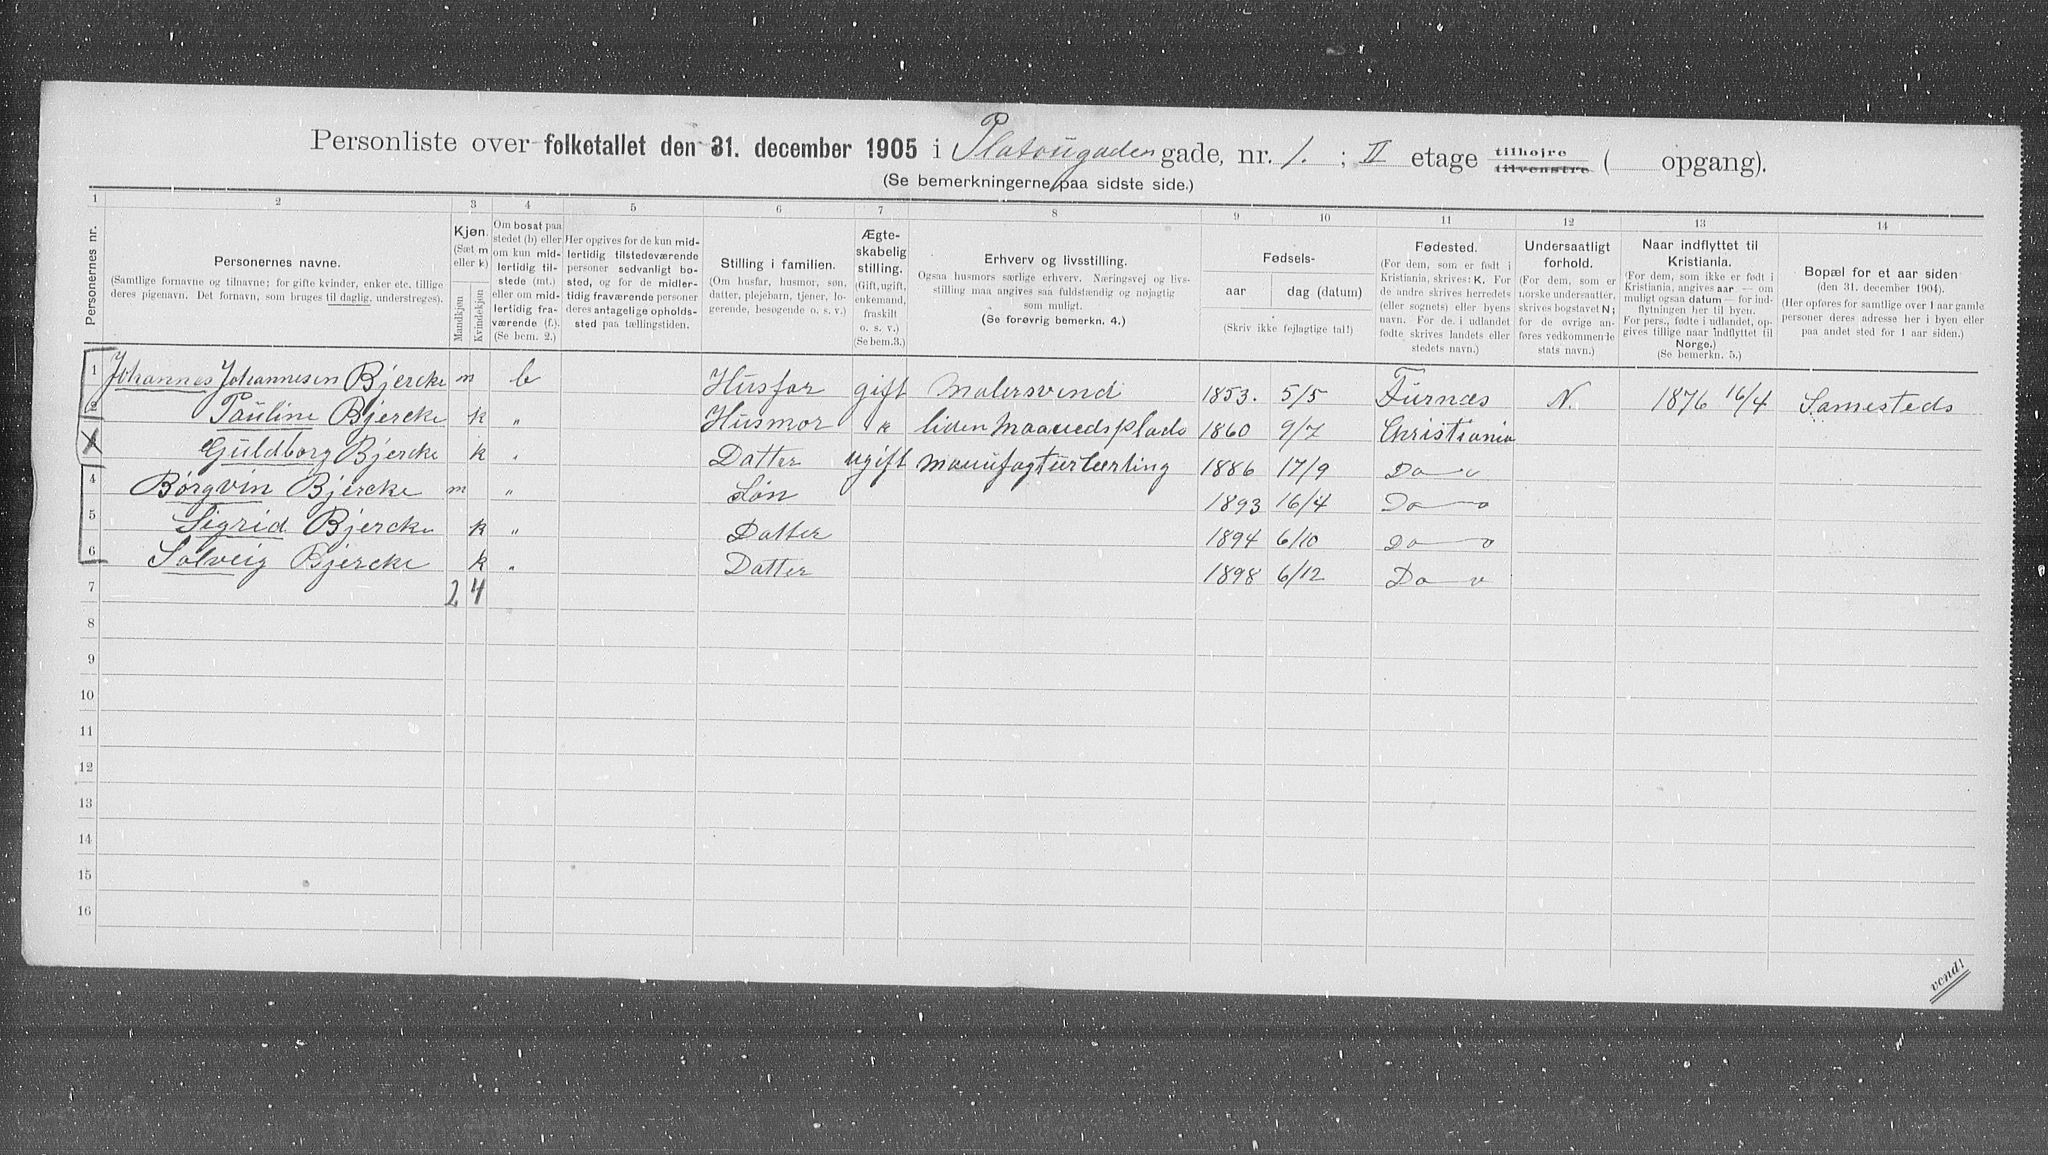 Personliste over folketallet den 31. december 1905 i Platougaden gade, nr. 1. ; II etage tilhøjre tilvenstre ( opgang).
(Se bemerkningerne paa sidste side.)
1 2 3 4 5 6 7 8 9 10 11 12 13 14
Personernes nr.
Personernes navne.
(Samtlige fornavne og tilnavne; for gifte kvinder, enker etc. tillige
deres pigenavn. Det fornavn, som bruges til daglig, understreges).
Kjøn.
(Sæt m
eller k)
Mandkjøn
Kvindekjøn
Om bosat paa
stedet (b) eller
om kun mid-
lertidig til-
stede (mt.)
eller om mid-
lertidig fra-
værende (f.).
(Se bem. 2.)
Her opgives for de kun mid-
lertidig tilstedeværende
personer sedvanligt bo-
sted, og for de midler-
tidig fraværende personer
deres antagelige opholds-
sted paa tællingstiden.
Stilling i familien.
(Om husfar, husmor, søn,
datter, plejebarn, tjener, lo-
gerende, besøgende o. s. v.)
Ægte-
skabelig
stilling.
(Gift, ugift,
enkemand,
fraskilt
o. s. v.)
(Se bem.3.)
Erhverv og livsstilling.
Ogsaa husmors særlige erhverv. Næringsvej og livs-
stilling maa angives saa fuldstændig og nøjagtig
som muligt.
(Se forøvrig bemerkn. 4.)
Fødsels-
aar dag (datum)
(Skriv ikke fejlagtige tal!)
Fødested.
(For dem, som er født i
Kristiania, skrives: K. For
de andre skrives herredets
(eller sognets) eller byens
navn. For de i udlandet
fødte skrives landets eller
stedets navn.)
Undersaatligt
forhold.
(For dem, som er
norske undersaatter,
skrives bogstavet N;
for de øvrige an-
føres vedkommende
stats navn.)
Naar indflyttet til
Kristiania.
(For dem, som ikke er født i
Kristiania, angives aar — om
muligt ogsaa datum — for ind-
flytningen her til byen.
For pers., fødte i udlandet, op-
gives tillige naar indflyttet til
Norge.)
(Se bemerkn. 5.)
Bopæl for et aar siden
(den 31. december 1904).
(Her opføres for samtlige over 1 aar gamle
personer deres adresse her i byen eller
paa andet sted for 1 aar siden.)
1 Johannes Johannesen Bjercke m b Husfar gift Malersvend 1853. 5/5 Furnæs N. 1876 16/4 Samesteds
2 Pauline Bjercke k " Husmor " liden Maanedsplads 1860 9/7 Christiania
Guldborg Bjercke k " Datter ugift Manufagturlærling 1886 17/9 Do
4 Børgvin Bjercke m " Søn 1893 16/4 Do
5 Sigrid Bjercke k " Datter 1894 6/10 Do
6 Solveig Bjercke k " Datter 1898 6/12 Do
7 2 4
8
9
10
11
12
13
14
15
16
vend!